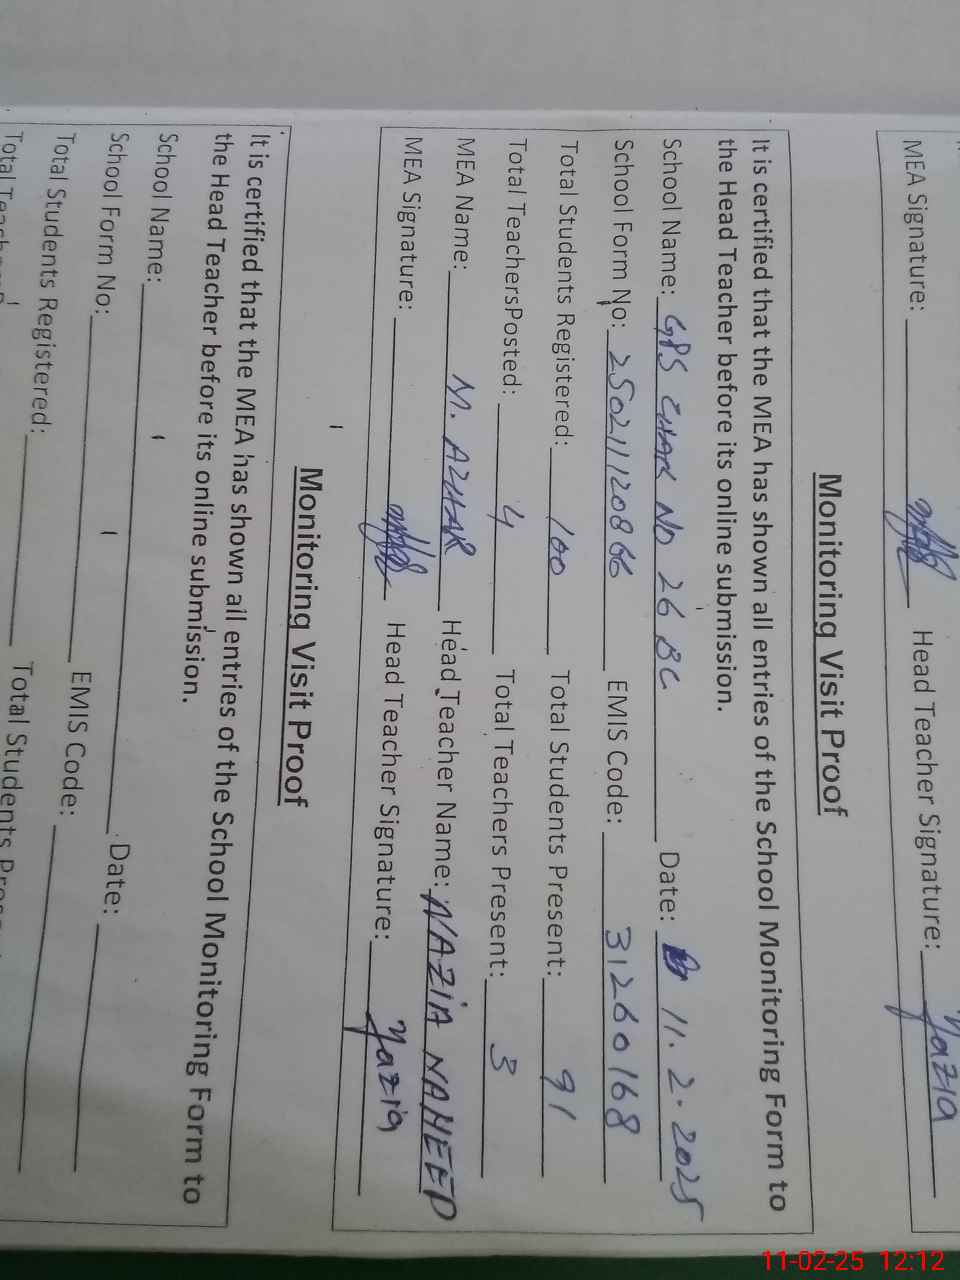 MEA Signature: Head Teacher Signature: Nazia
Monitoring Visit Proof
It is certified that the MEA has shown all entries of the School Monitoring Form to
the Head Teacher before its online submission.
School Name: GPS CHAK NO 26 BC Date: 11.2.2025
School Form No: 250211120866 EMIS Code: 31260168
Total Students Registered: 100 Total Students Present: 91
Total TeachersPosted: 4 Total Teachers Present: 3
MEA Name: M. AZHAR Head Teacher Name: NAZIA NAHEED
MEA Signature: Head Teacher Signature: Nazia
Monitoring Visit Proof
It is certified that the MEA has shown all entries of the School Monitoring Form to
the Head Teacher before its online submission.
School Name: Date:
School Form No: EMIS Code:
Total Students Registered: Total Students
Total
11-02-25 12:12